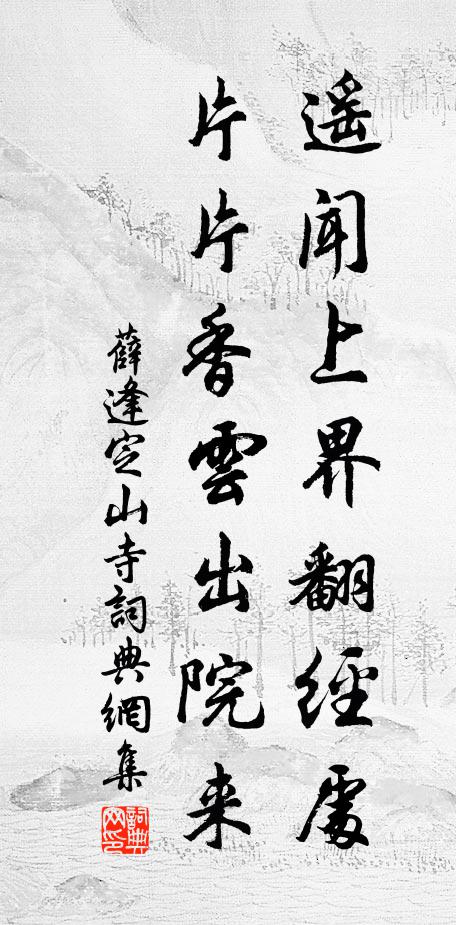 遥聞上界翻經處
片片香雲出院来
薛逢定山寺詞典網集
詞典网印